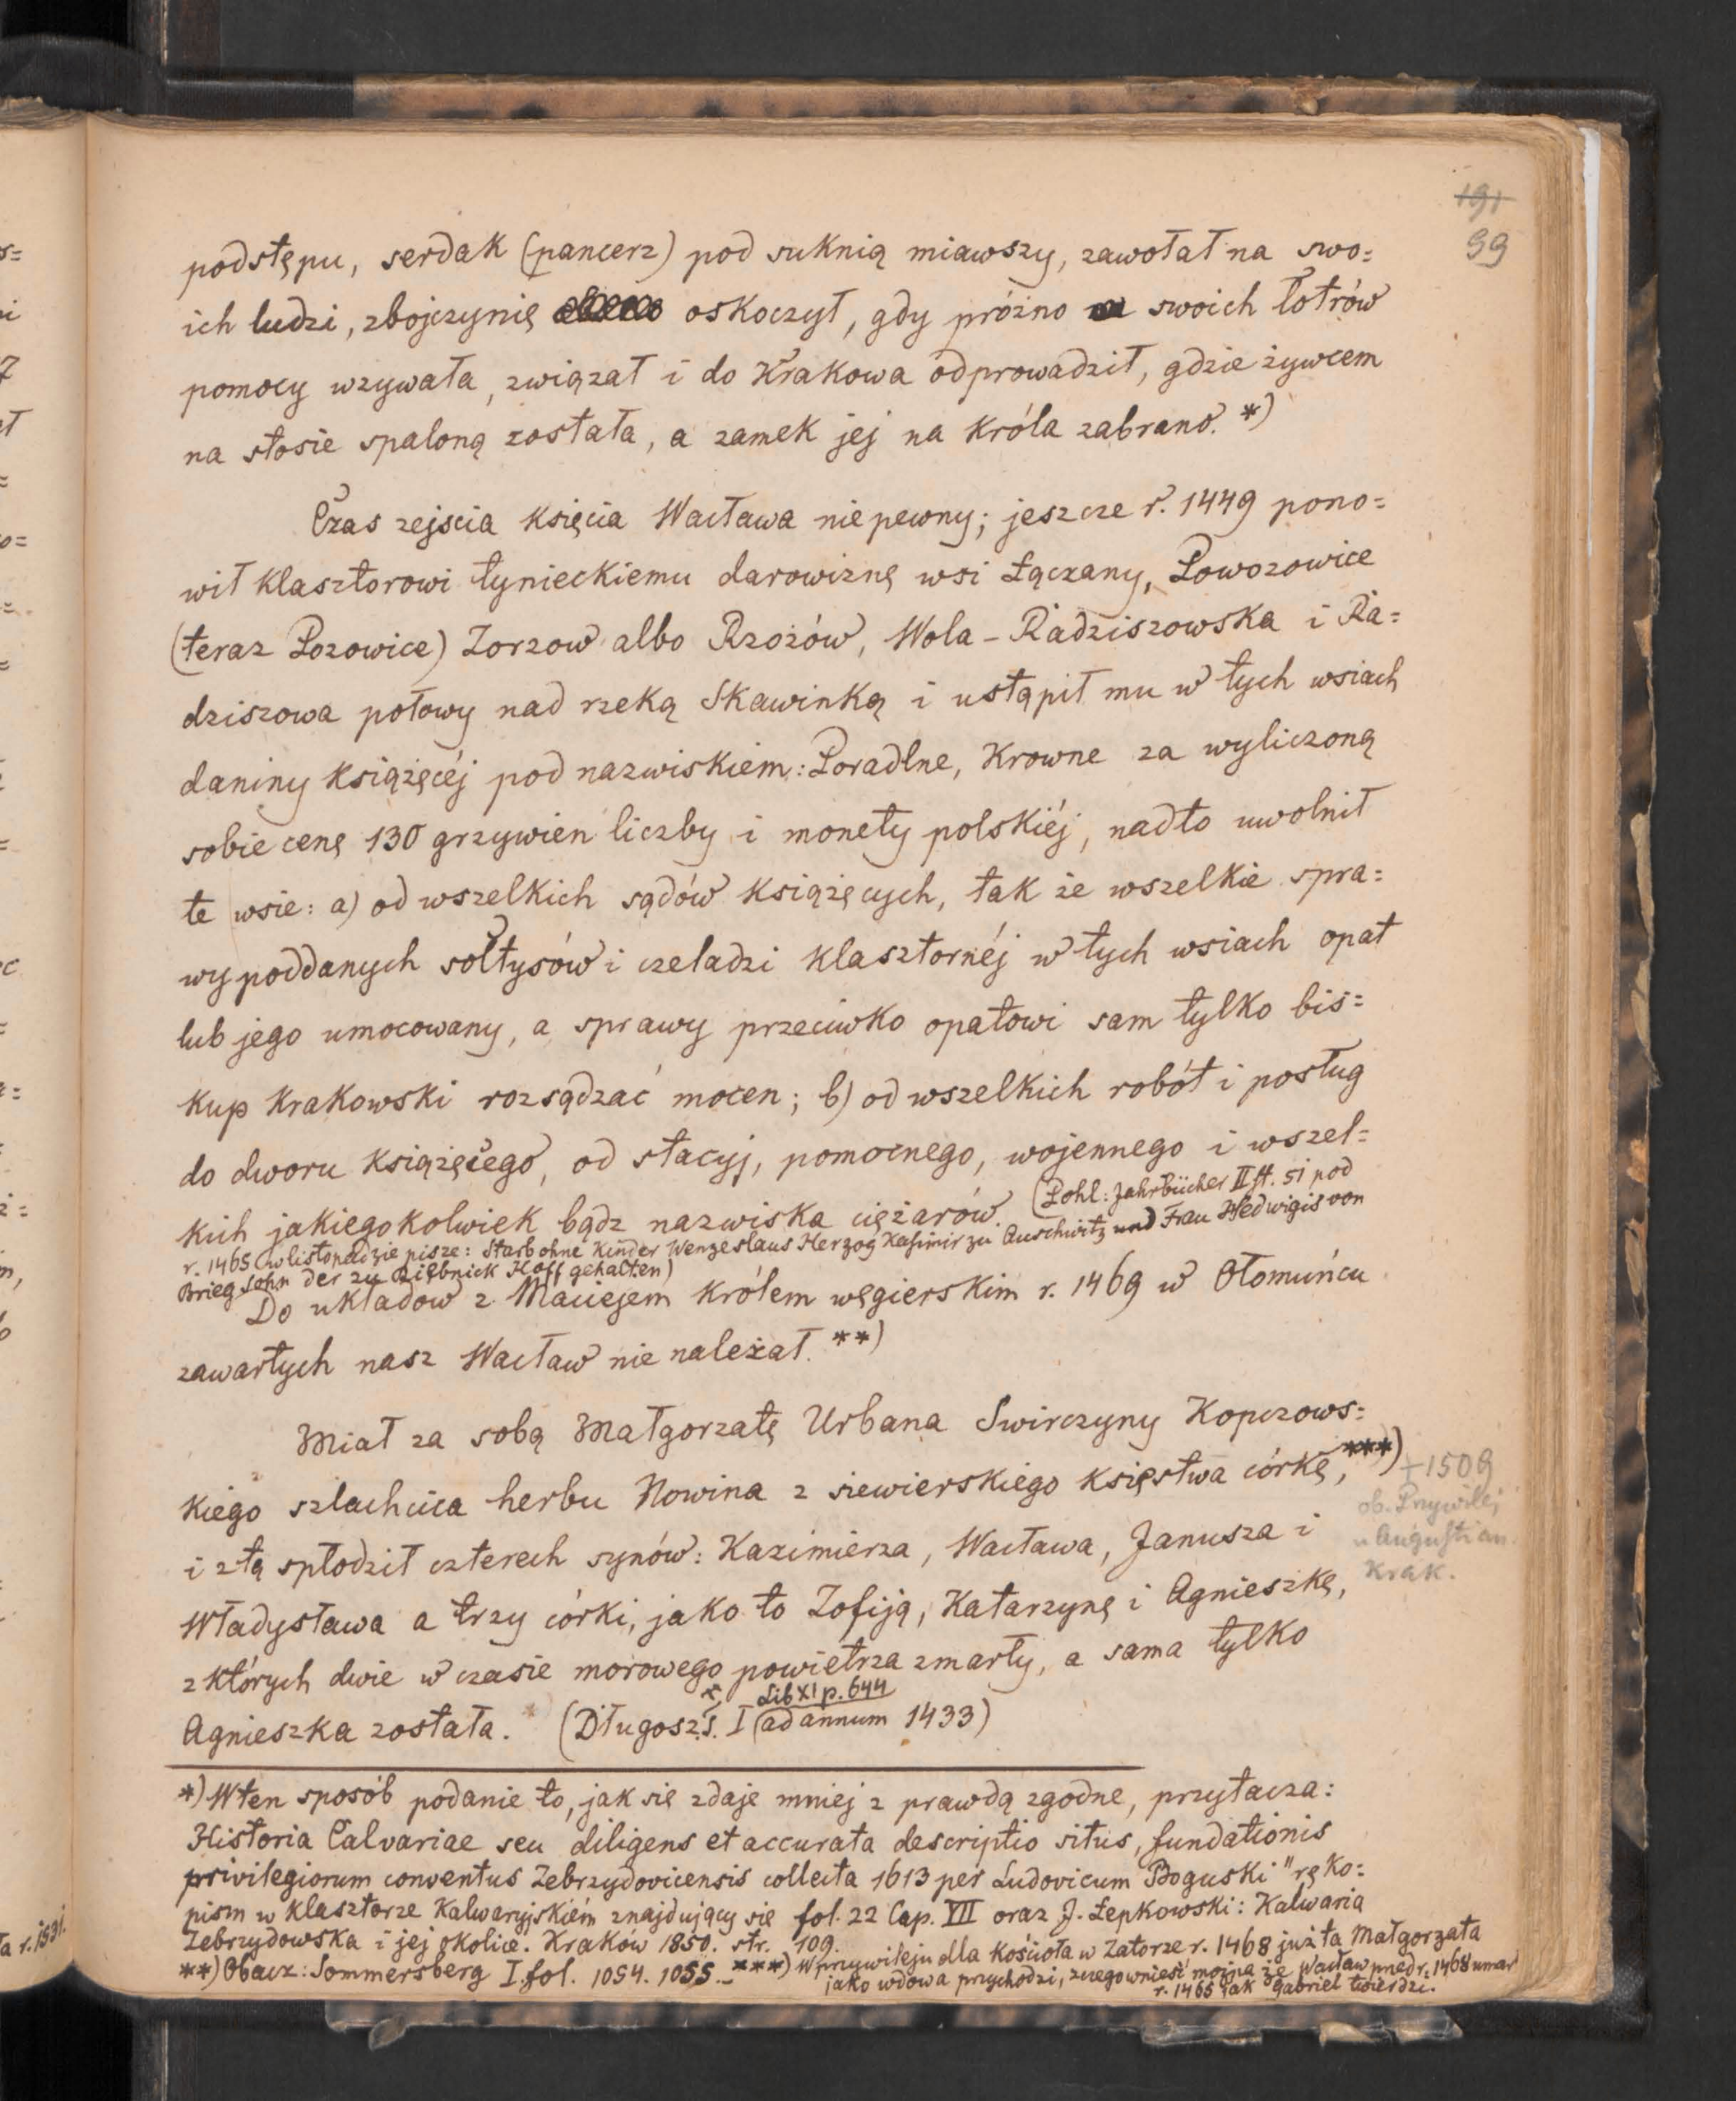 191
99
podstępu, serdak (pancerz) pod suknią miawszy, zawołał na swo=
ich ludzi, zbojczynię oskoczył, gdy próżno swoich łotrów
pomocy wzywała, związał i do Krakowa odprowadził, gdzie żywcem
na stosie spaloną została, a zamek jej na króla zabrano. *)
Czas zejscia księcia Wacława niepewny; jeszcze r. 1449 pono=
wił klasztorowi tynieckiemu darowiznę wsi Łączany, Powozowice
(teraz Pozowice) Zorzow albo Rzożów, Wola-Radziszowska i Ra=
dziszowa połowy nad rzeką Skawinką i ustąpił mu w tych wsiach
daniny książęcéj pod nazwiskiem: Poradlne, Krowne za wyliczoną
sobie cenę 130 grzywien liczby i monety polskiéj, nadto uwolnił
te wsie: a) od wszelkich sądów książęcych, tak że wszelkie spra=
wy poddanych sołtysów i czeladzi klasztornéj w tych wsiach opat
lub jego umocowany, a sprawy przeciwko opatowi sam tylko bis=
kup krakowski rozsądzać mocen; b) od wszelkich robót i posług
do dworu książęcego, od stacyj, pomocnego, wojennego i wszel=
kich jakiegokolwiek bądz nazwiska ciężarów. (Pohl: Jahrbücher II ff. 51 pod
r. 1465 w listopadzie pisze: Starb ohne Kinder Wenzeslaus Herzog Kasimir zu Auschwitz und Frau Hedwigis von
Brieg Sohn der zu Ziębnick Hoff gehalten)
Do układow z Maciejem królem węgierskim r. 1469 w Ołomuńcu
zawartych nasz Wacław nie należał. **)
Miał za sobą Małgorzatę Urbana Swirczyny Kopczows=
kiego szlachcica herbu Nowina z siewierskiego księstwa córkę, ***)
+ 1509
ob. Przywilej
u Augustian.
Krak.
i z tą spłodził czterech synów: Kazimierza, Wacława, Janusza i
Władysława a trzy córki, jako to Zofiją, Katarzynę i Agnieszkę,
z których dwie w czasie morowego powietrza zmarły, a sama tylko
Agnieszka została. (Długosz s. I Lib XI p. 644 ad annum 1433)
*) W ten sposób podanie to, jak się zdaje mniej z prawdą zgodne, przytacza:
Historia Calvariae seu diligens et accurata descriptio situs, fundationis
privilegiorum conventus Zebrzydovicensis collecta 1613 per Ludovicum Boguski" ręko=
pism w klasztorze Kalwaryjskiém znajdujący się fol. 22 Cap. VII oraz J. Łepkowski: Kalwaria
Zebrzydowska i jej okolice. Kraków 1850. str. 109.
**) Obacz: Sommersberg I. fol. 1054. 1055. ***) W przywileju dla kościoła w Zatorze r. 1468 już ta Małgorzata
jako wdowa przychodzi, z czego wnieść można że Wacław przed r. 1468 umarł
r. 1465 jak Gabriel twierdzi.